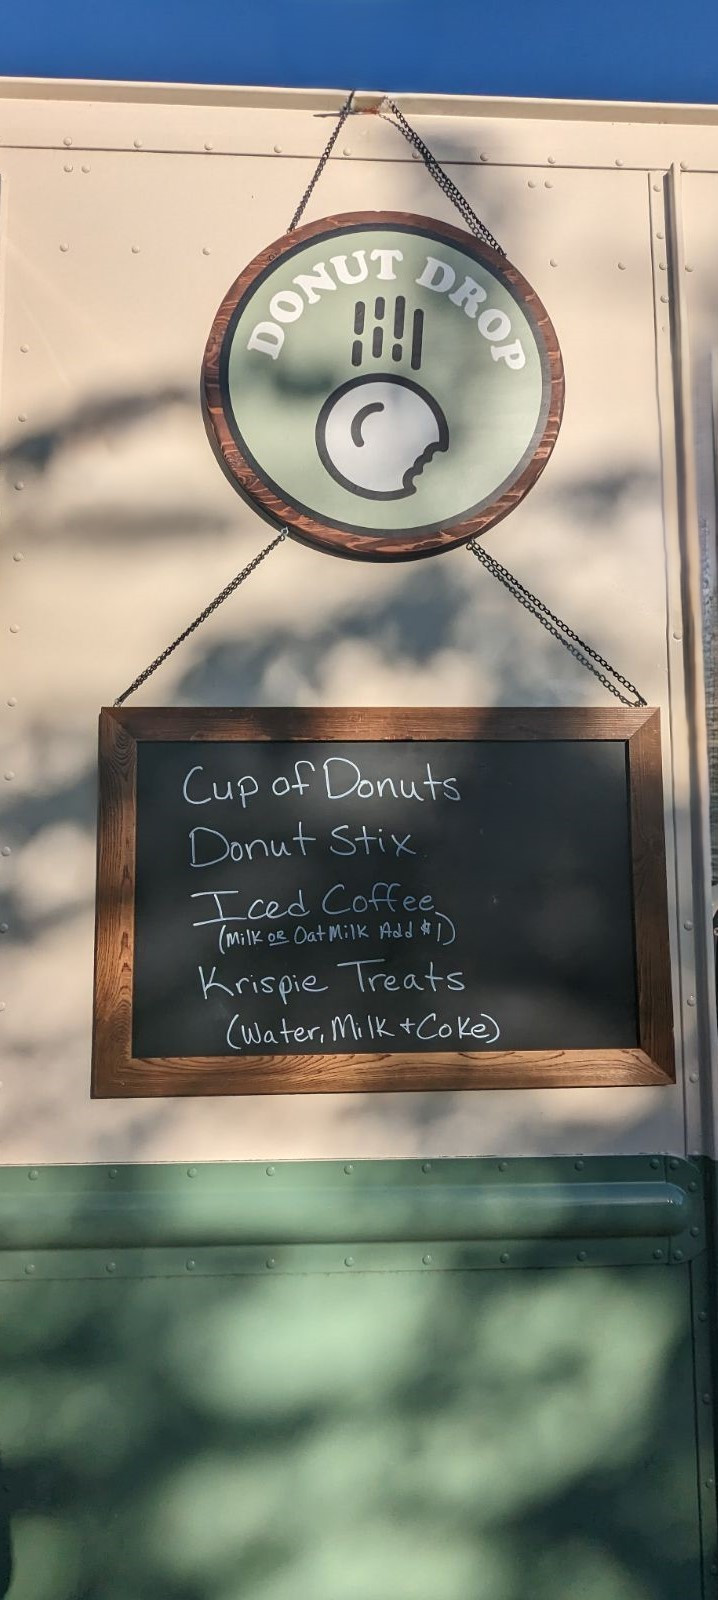 DONUT DROP
Cup of Donuts
Donut Stix
Iced Coffee
(Milk or Oat Milk Add $1)
Krispie Treats
(Water, Milk + Coke)